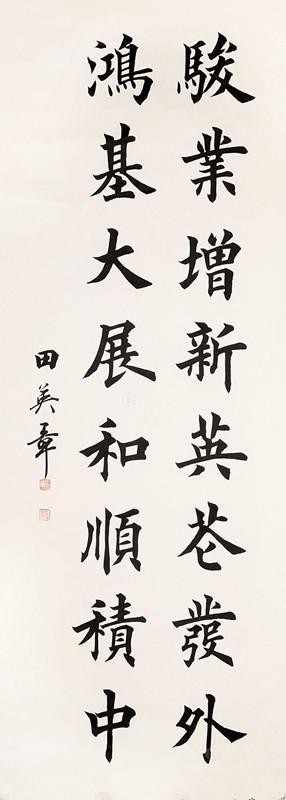 駿業增新英花發外
鴻基大展和順積中
田英章